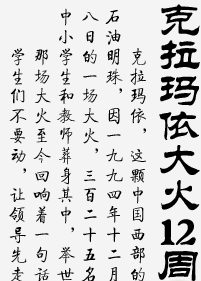 克拉玛依大火12周
克拉玛依，这颗中国西部的
石油明珠，因一九九四年十二月
八日的一场大火，三百二十五名
中小学生和教师葬身其中，举世
那场大火至今回响着一句话
学生们不要动，让领导先走